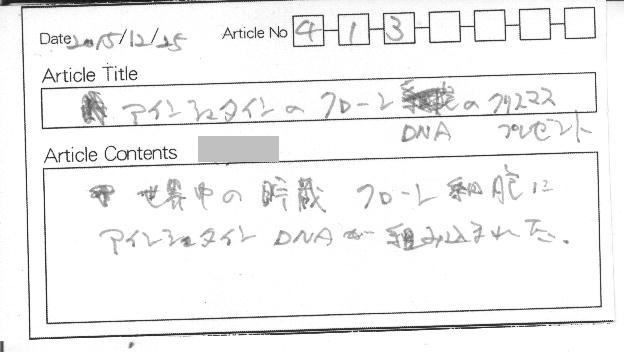 Date 2015/12/25 Article No 4-1-3
Article Title
アインシュタインのクローン の クリスマス
DNA プレゼント
Article Contents
世界中の貯蔵 クローン 細胞に
アインシュタイン DNAが 組み込まれた.